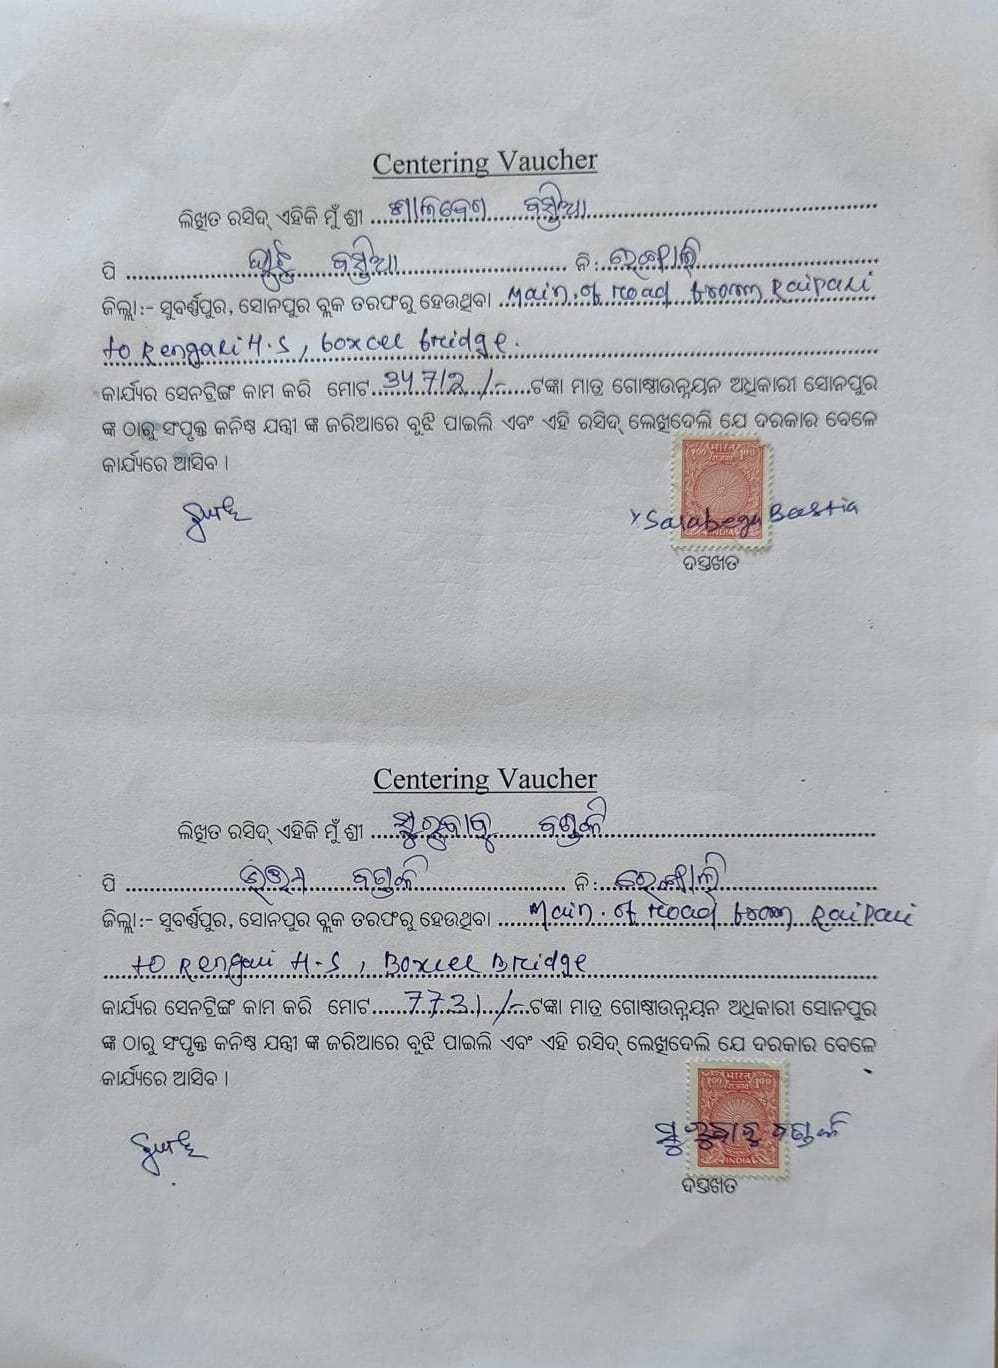 Centering Vaucher
ଲିଖିତ ରସିଦ୍ ଏହିକି ମୁଁ ଶ୍ରୀ ........ ବସ୍ତିଆ ........
ପି ........ ବସ୍ତିଆ ........ ନି: ରେଙ୍ଗାଲି ........
ଜିଲ୍ଲା:- ସୁବର୍ଣ୍ଣପୁର, ସୋନପୁର ବ୍ଲକ ତରଫରୁ ହେଉଥିବା Main. of road from Raipali
to Rengali H.S, boxcel bridge.
କାର୍ଯ୍ୟର ସେନଟ୍ରିଙ୍ଗ କାମ କରି ମୋଟ 34712/- ଟଙ୍କା ମାତ୍ର ଗୋଷ୍ଠୀଉନ୍ନୟନ ଅଧିକାରୀ ସୋନପୁର
ଙ୍କ ଠାରୁ ସଂପୃକ୍ତ କନିଷ୍ଠ ଯନ୍ତ୍ରୀ ଙ୍କ ଜରିଆରେ ବୁଝି ପାଇଲି ଏବଂ ଏହି ରସିଦ୍ ଲେଖିଦେଲି ଯେ ଦରକାର ବେଳେ
କାର୍ଯ୍ୟରେ ଆସିବ ।
भारत
१०० 1.00
INDIA
x Sarabega Bastia
ଦସ୍ତଖତ
Centering Vaucher
ଲିଖିତ ରସିଦ୍ ଏହିକି ମୁଁ ଶ୍ରୀ ........
ପି ........ ନି: ରେଙ୍ଗାଲି ........
ଜିଲ୍ଲା:- ସୁବର୍ଣ୍ଣପୁର, ସୋନପୁର ବ୍ଲକ ତରଫରୁ ହେଉଥିବା Main. of road from Raipali
to Rengali H.S, Boxcel Bridge
କାର୍ଯ୍ୟର ସେନଟ୍ରିଙ୍ଗ କାମ କରି ମୋଟ 7731/- ଟଙ୍କା ମାତ୍ର ଗୋଷ୍ଠୀଉନ୍ନୟନ ଅଧିକାରୀ ସୋନପୁର
ଙ୍କ ଠାରୁ ସଂପୃକ୍ତ କନିଷ୍ଠ ଯନ୍ତ୍ରୀ ଙ୍କ ଜରିଆରେ ବୁଝି ପାଇଲି ଏବଂ ଏହି ରସିଦ୍ ଲେଖିଦେଲି ଯେ ଦରକାର ବେଳେ
କାର୍ଯ୍ୟରେ ଆସିବ ।
भारत
१०० 1.00
INDIA
ଦସ୍ତଖତ